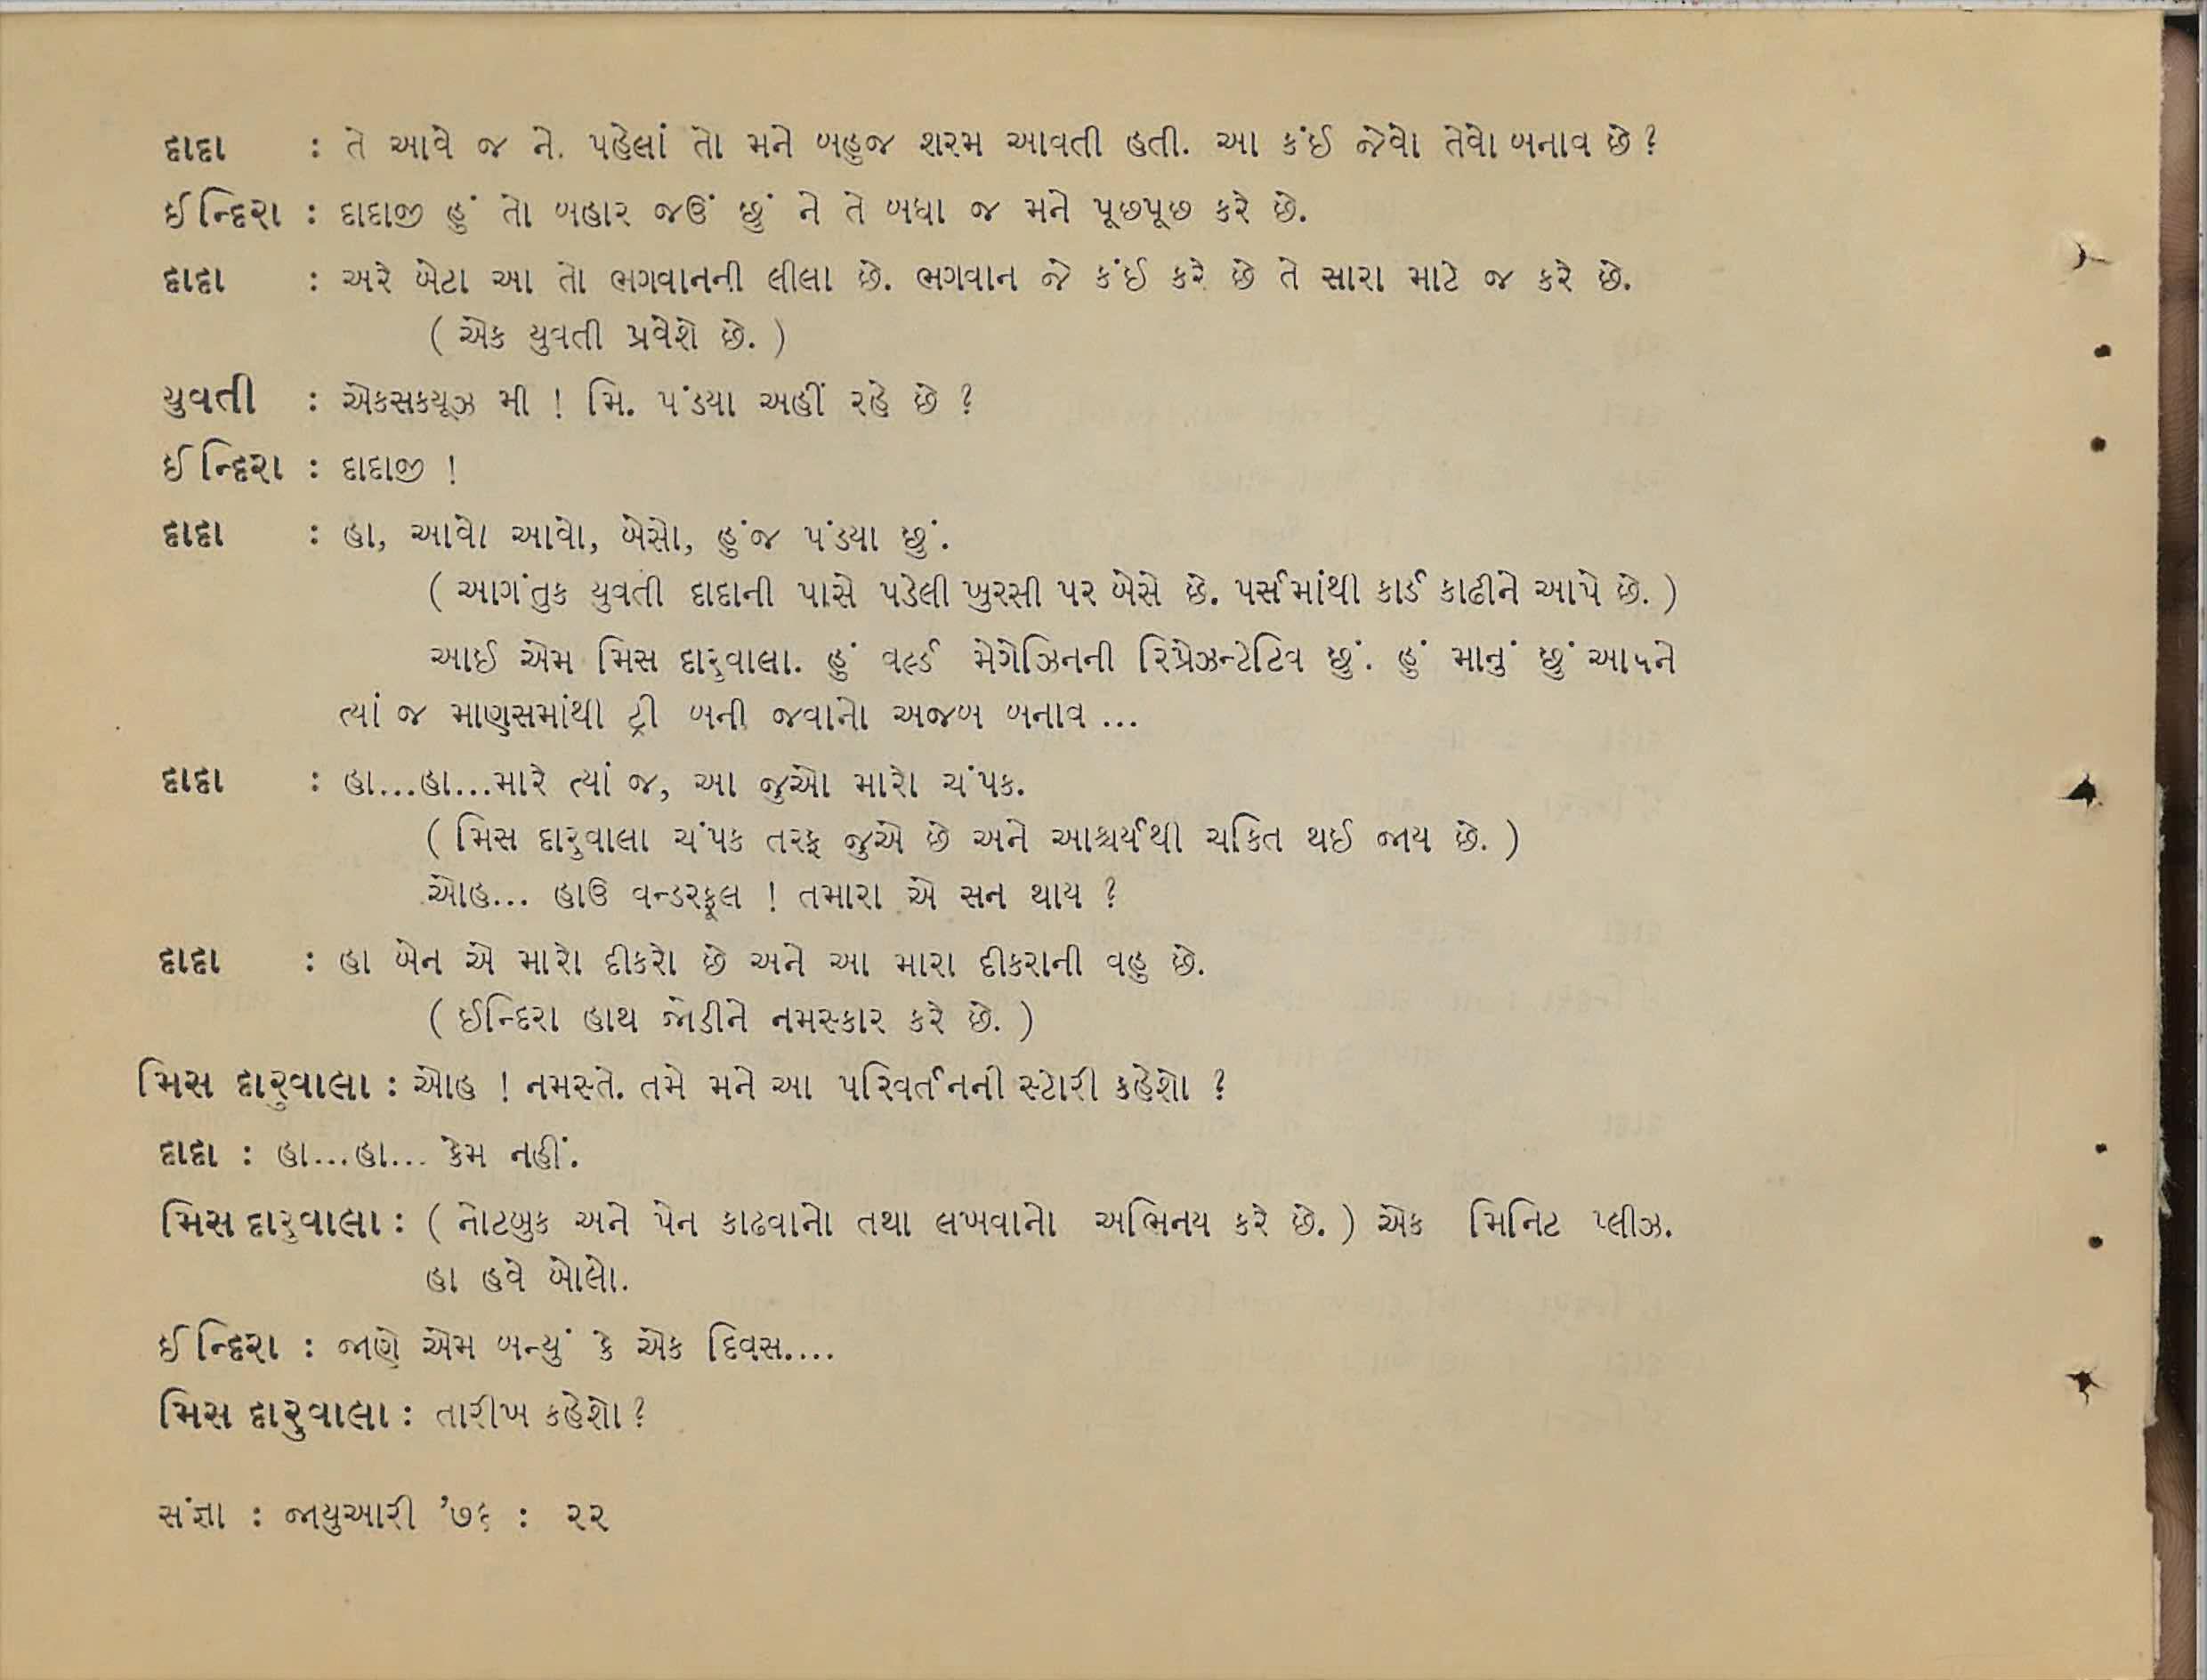 દાદા : તે આવે જ ને. પહેલાં તો મને બહુજ શરમ આવતી હતી. આ કંઈ જેવો તેવો બનાવ છે ?
ઈન્દિરા : દાદાજી હું તો બહાર જઉં છું ને તે બધા જ મને પૂછપૂછ કરે છે.
દાદા : અરે બેટા આ તો ભગવાનની લીલા છે. ભગવાન જે કંઈ કરે છે તે સારા માટે જ કરે છે.
( એક યુવતી પ્રવેશે છે. )
યુવતી : એકસકયૂઝ મી ! મિ. પંડયા અહીં રહે છે ?
ઈન્દિરા : દાદાજી !
દાદા : હા, આવો આવો, બેસો, હુંજ પંડયા છું.
( આગંતુક યુવતી દાદાની પાસે પડેલી ખુરસી પર બેસે છે. પર્સમાંથી કાર્ડ કાઢીને આપે છે. )
આઈ એમ મિસ દારુવાલા. હું વર્લ્ડ મેગેઝિનની રિપ્રેઝન્ટેટિવ છું. હું માનું છું આપને
ત્યાં જ માણસમાંથી ટ્રી બની જવાનો અજબ બનાવ ...
દાદા : હા...હા...મારે ત્યાં જ, આ જુઓ મારો ચંપક.
( મિસ દારુવાલા ચંપક તરફ જુએ છે અને આશ્ચર્યથી ચકિત થઈ જાય છે. )
ઓહ... હાઉ વન્ડરફૂલ ! તમારા એ સન થાય ?
દાદા : હા બેન એ મારો દીકરો છે અને આ મારા દીકરાની વહુ છે.
( ઈન્દિરા હાથ જોડીને નમસ્કાર કરે છે. )
મિસ દારુવાલા : ઓહ ! નમસ્તે. તમે મને આ પરિવર્તનની સ્ટોરી કહેશો ?
દાદા : હા...હા... કેમ નહીં.
મિસ દારુવાલા : ( નોટબુક અને પેન કાઢવાનો તથા લખવાનો અભિનય કરે છે. ) એક મિનિટ પ્લીઝ.
હા હવે બોલો.
ઈન્દિરા : જાણે એમ બન્યું કે એક દિવસ....
મિસ દારુવાલા : તારીખ કહેશો ?
સંજ્ઞા : જાયુઆરી '૭૬ : ૨૨